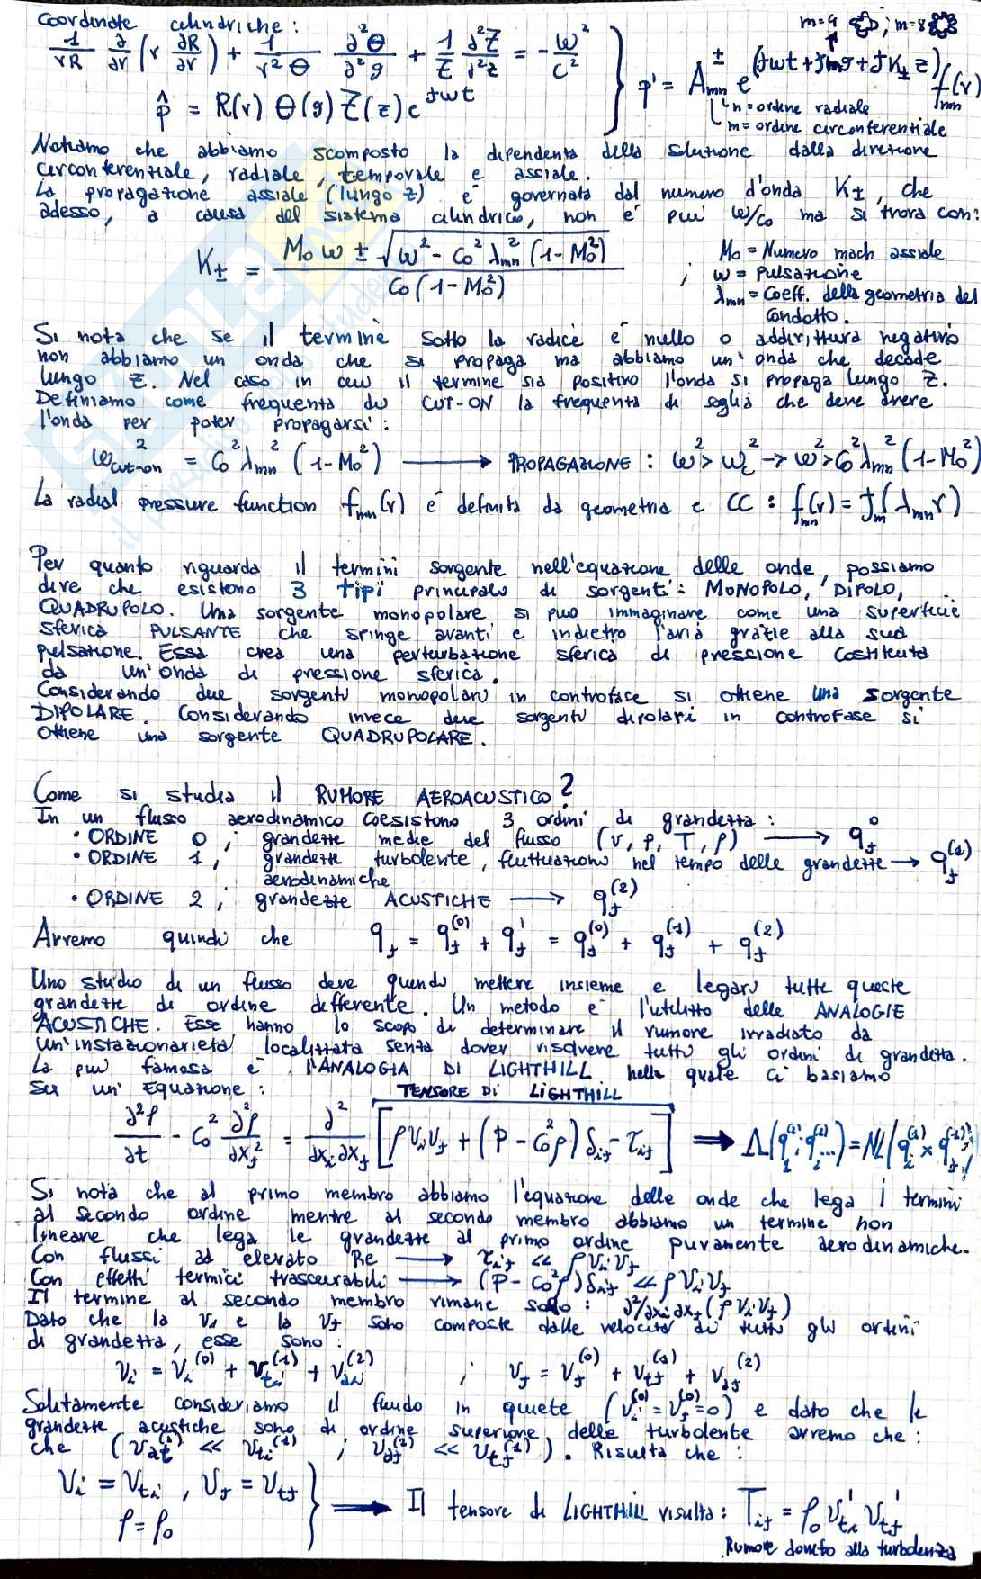 Coordinate cilindriche:
m=4 ; m=8
1/(rR) ∂/∂r (r ∂R/∂r) + 1/(r²Θ) ∂²Θ/∂²ϑ + 1/Z ∂²Z/∂²z = -ω²/c² } p' = A±mn e^(jωt + jmϑ + jK± z) f(r)mn
p̂ = R(r) Θ(ϑ) Z(z) e^jωt
n = ordine radiale
m = ordine circonferenziale
Notiamo che abbiamo scomposto la dipendenza della soluzione dalla direzione
circonferenziale, radiale, temporale e assiale.
La propagazione assiale (lungo z) è governata dal numero d'onda K±, che
adesso, a causa del sistema cilindrico, non è più ω/c₀ ma si trova con:
K± = (M₀ω ± √(ω² - C₀² λ²mn (1-M₀²))) / (C₀(1-M₀²)) ;
M₀ = Numero mach assiale
ω = Pulsazione
λmn = Coeff. della geometria del
condotto.
Si nota che se il termine sotto la radice è nullo o addirittura negativo
non abbiamo un onda che si propaga ma abbiamo un'onda che decade
lungo z. Nel caso in cui il termine sia positivo l'onda si propaga lungo z.
Definiamo come frequenza di CUT-ON la frequenza di soglia che deve avere
l'onda per poter propagarsi:
ω²cut-on = C₀² λ²mn (1-M₀²) → PROPAGAZIONE : ω² > ωc² → ω² > C₀² λ²mn (1-M₀²)
La radial pressure function fmn(r) è definita da geometria e CC : f(r)mn = Jm(λmn r)
Per quanto riguarda il termini sorgente nell'equazione delle onde, possiamo
dire che esistono 3 tipi principali di sorgenti: MONOPOLO, DIPOLO,
QUADRUPOLO. Una sorgente monopolare si può immaginare come una superficie
sferica PULSANTE che spinge avanti e indietro l'aria grazie alla sua
pulsazione. Essa crea una perturbazione sferica di pressione costituita
da un'onda di pressione sferica.
Considerando due sorgenti monopolari in controfase si ottiene una sorgente
DIPOLARE. Considerando invece due sorgenti dipolari in controfase si
ottiene una sorgente QUADRUPOLARE.
Come si studia il RUMORE AEROACUSTICO?
In un flusso aerodinamico coesistono 3 ordini di grandezza:
• ORDINE 0 ; grandezze medie del flusso (v, p, T, ρ) → qⱼ⁰
• ORDINE 1 , grandezze turbolente, fluttuazioni nel tempo delle grandezze → qⱼ⁽¹⁾
aerodinamiche
• ORDINE 2 ; grandezze ACUSTICHE → qⱼ⁽²⁾
Avremo quindi che qⱼ = qⱼ⁽⁰⁾ + qⱼ' = qⱼ⁽⁰⁾ + qⱼ⁽¹⁾ + qⱼ⁽²⁾
Uno studio di un flusso deve quindi mettere insieme e legare tutte queste
grandezze di ordine differente. Un metodo è l'utilizzo delle ANALOGIE
ACUSTICHE. Esse hanno lo scopo di determinare il rumore irradiato da
un'instazionarietà localizzata senza dover risolvere tutti gli ordini di grandezza.
La più famosa è l'ANALOGIA DI LIGHTHILL nella quale ci basiamo
su un'Equazione :
TENSORE DI LIGHTHILL
∂²ρ/∂t - C₀² ∂²ρ/∂xⱼ² = ∂²/∂xᵢ∂xⱼ [ρVᵢVⱼ + (P - C₀²ρ)δᵢⱼ - τᵢⱼ]
Si nota che al primo membro abbiamo l'equazione delle onde che lega i termini
al secondo ordine mentre al secondo membro abbiamo un termine non
lineare che lega le grandezze al primo ordine puramente aerodinamiche.
Con flussi ad elevato Re → τᵢⱼ << ρVᵢVⱼ
Con effetti termici trascurabili → (P - C₀²ρ)δᵢⱼ << ρVᵢVⱼ
Il termine al secondo membro rimane solo : ∂²/∂xᵢ∂xⱼ (ρVᵢVⱼ)
Dato che la Vᵢ e la Vⱼ sono composte dalle velocità di tutti gli ordini
di grandezza, esse sono :
Vᵢ = Vᵢ⁽⁰⁾ + Vtᵢ⁽¹⁾ + Vaᵢ⁽²⁾ ; Vⱼ = Vⱼ⁽⁰⁾ + Vtⱼ⁽¹⁾ + Vaⱼ⁽²⁾
Solitamente consideriamo il fluido in quiete (Vᵢ⁽⁰⁾ = Vⱼ⁽⁰⁾ = 0) e dato che le
grandezze acustiche sono di ordine superiore delle turbolente avremo che :
che (Vaᵢ⁽²⁾ << Vtᵢ⁽¹⁾ ; Vaⱼ⁽²⁾ << Vtⱼ⁽¹⁾). Risulta che :
Vᵢ = Vtᵢ , Vⱼ = Vtⱼ
ρ = ρ₀
} → Il tensore di LIGHTHILL risulta: Tᵢⱼ = ρ₀ V'tᵢ V'tⱼ
Rumore dovuto alla turbolenza